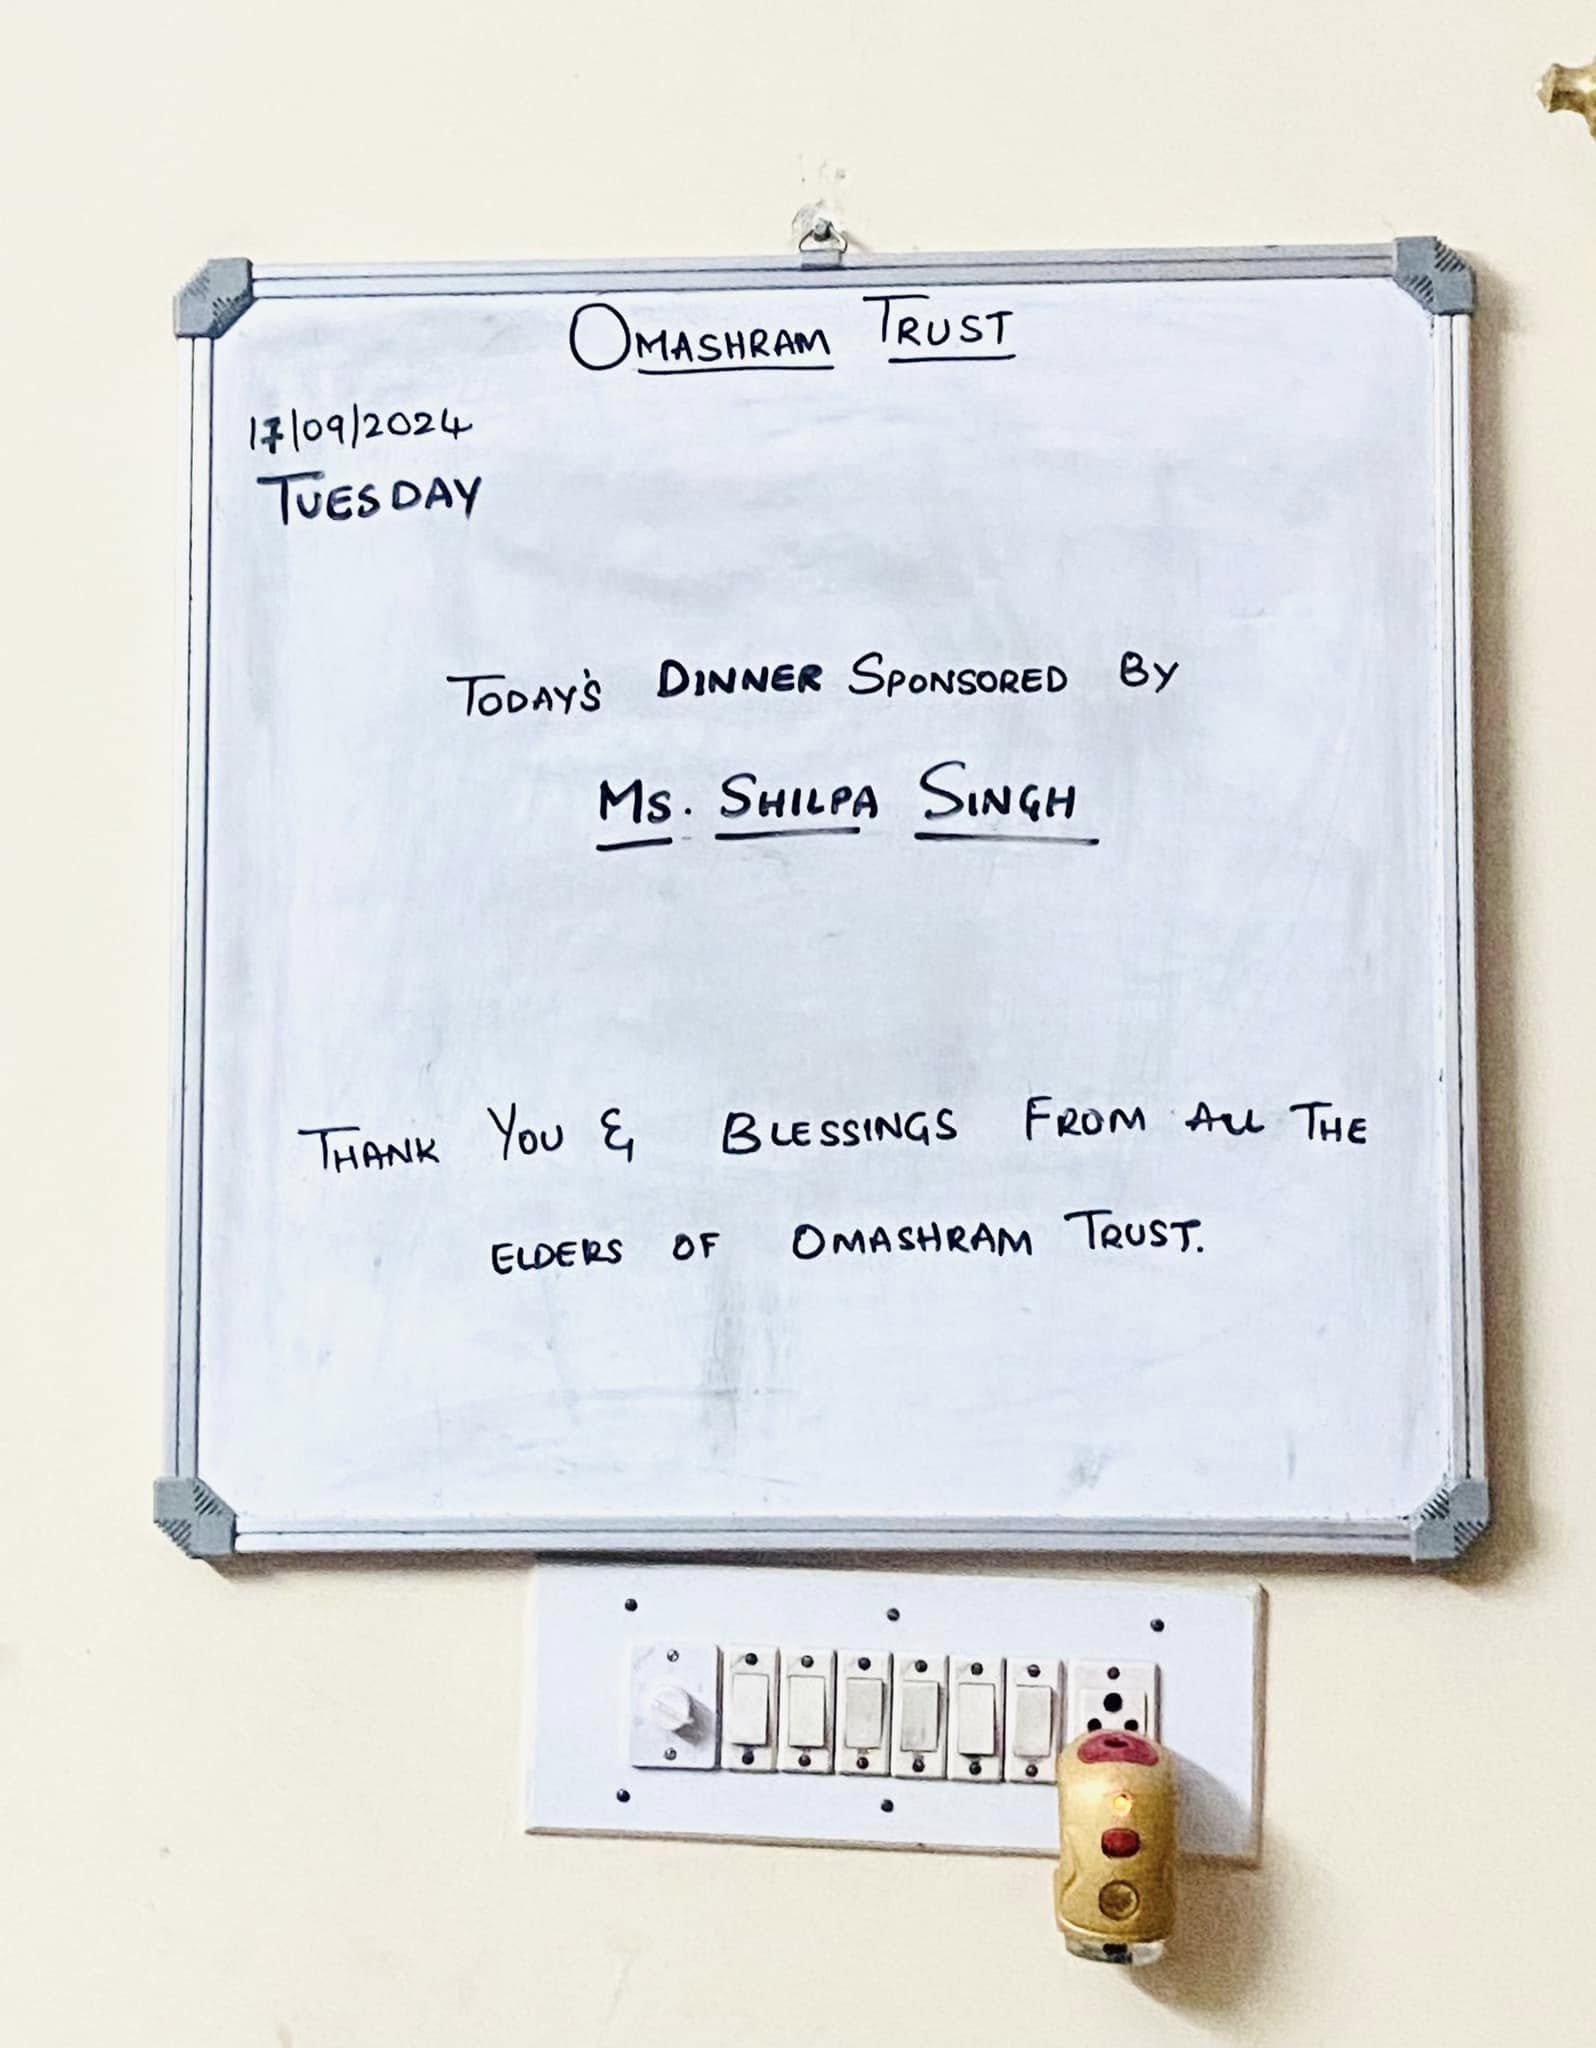 OMASHRAM TRUST
17/09/2024
TUESDAY
TODAY'S DINNER SPONSORED BY
MS. SHILPA SINGH
THANK YOU & BLESSINGS FROM ALL THE
ELDERS OF OMASHRAM TRUST.